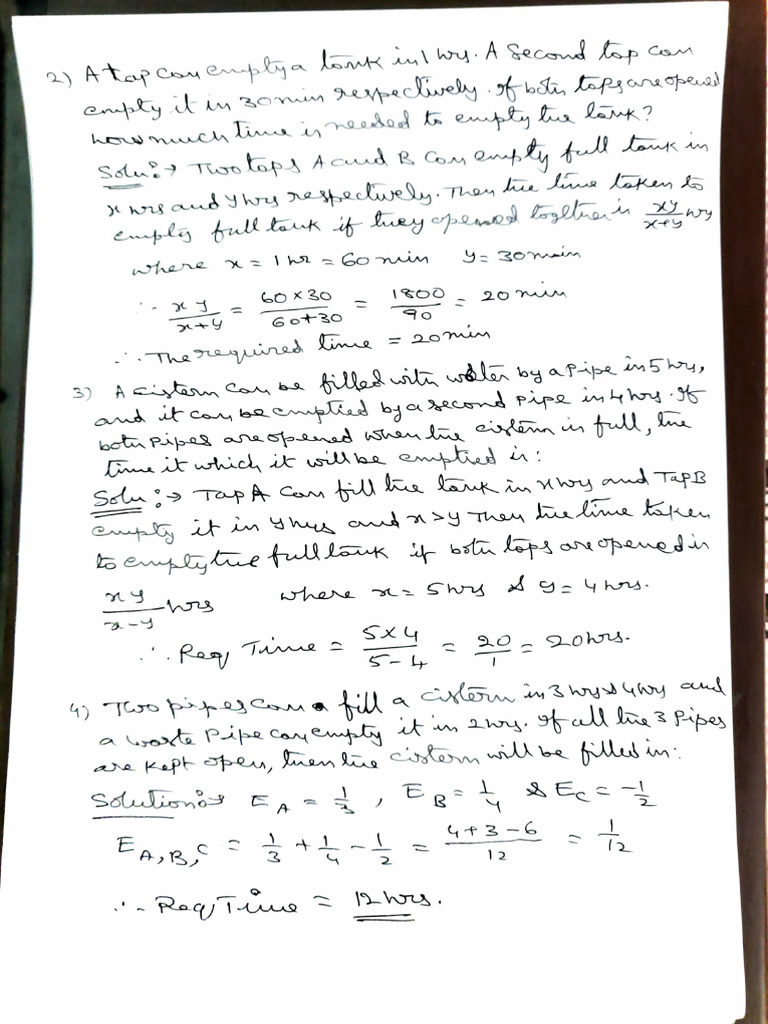 2) A tap can empty a tank in 1 hrs. A second tap can
empty it in 30 min respectively. If both taps are opened
how much time is needed to empty the tank?
Solu:→ Two taps A and B can empty full tank in
x hrs and y hrs respectively. Then the time taken to
empty full tank if they opened together is xy/x+y hrs
where x = 1 hr = 60 min y = 30 min
∴ xy/x+y = 60×30/60+30 = 1800/90 = 20 min
∴ The required time = 20 min
3) A cistern can be filled with water by a pipe in 5 hrs,
and it can be emptied by a second pipe in 4 hrs. If
both pipes are opened when the cistern is full, the
time it which it will be emptied is:
Solu:→ Tap A can fill the tank in x hrs and Tap B
empty it in y hrs and x>y Then the time taken
to empty the full tank if both taps are opened is
xy/x-y hrs where x = 5 hrs & y = 4 hrs.
∴ Req Time = 5×4/5-4 = 20/1 = 20 hrs.
4) Two pipes can fill a cistern in 3 hrs & 4 hrs and
a waste pipe can empty it in 2 hrs. If all the 3 pipes
are kept open, then the cistern will be filled in:
Solution:→ E A = 1/3, E B = 1/4 & E C = -1/2
E A,B,C = 1/3 + 1/4 - 1/2 = 4+3-6/12 = 1/12
∴ Req Time = 12 hrs.